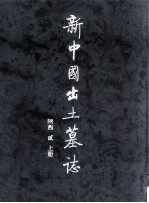 新中國出土墓誌
陝西 貳 上冊